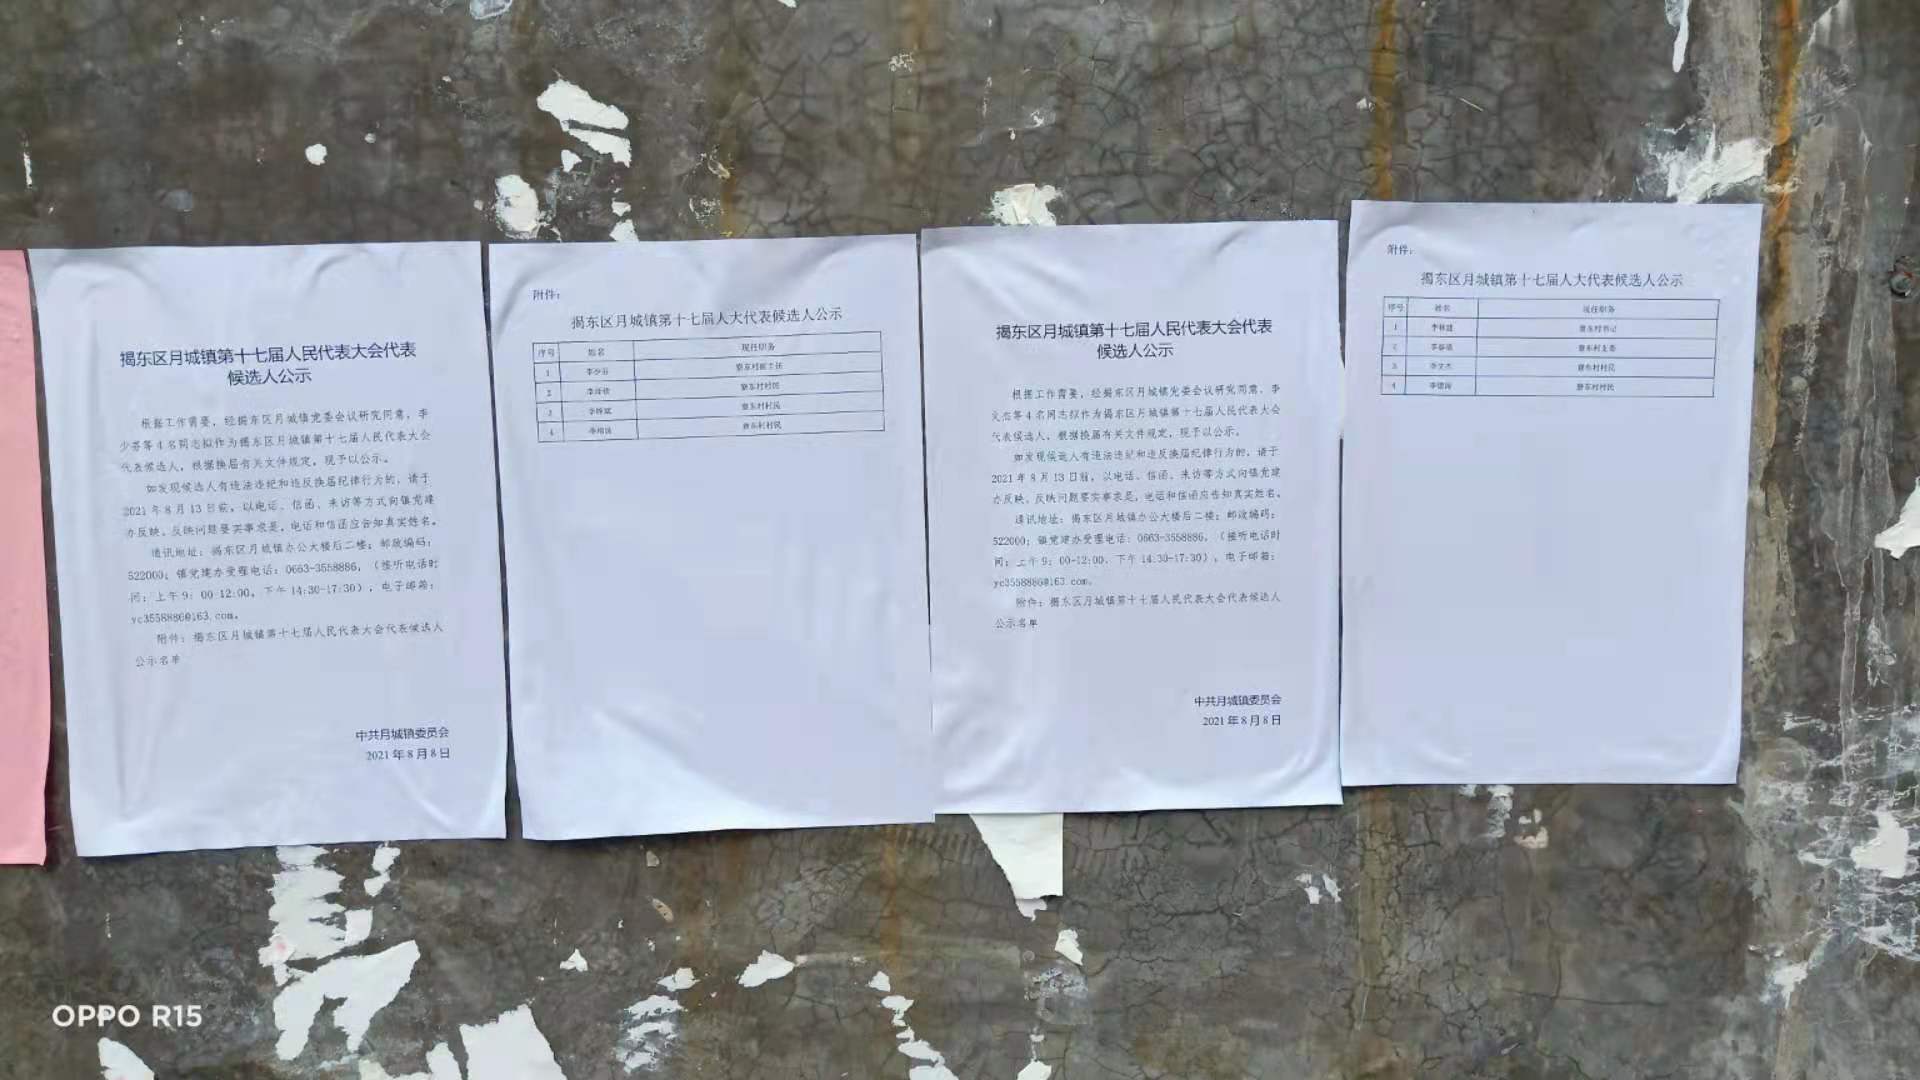 揭东区月城镇第十七届人民代表大会代表
候选人公示
根据工作需要，经揭东区月城镇党委会议研究同意，李
少芬等4名同志拟作为揭东区月城镇第十七届人民代表大会
代表候选人，根据换届有关文件规定，现予以公示。
如发现候选人有违法违纪和违反换届纪律行为的，请于
2021年8月13日前，以电话、信函、来访等方式向镇党建
办反映。反映问题要实事求是，电话和信函应告知真实姓名。
通讯地址：揭东区月城镇办公大楼后二楼；邮政编码：
522000；镇党建办受理电话：0663-3558886，（接听电话时
间：上午9：00-12:00，下午14:30-17:30），电子邮箱：
yc3558886@163.com。
附件：揭东区月城镇第十七届人民代表大会代表候选人
公示名单
中共月城镇委员会
2021年8月8日
附件：
揭东区月城镇第十七届人大代表候选人公示
序号 姓名 现任职务
1 李少芬
2
3
4
揭东区月城镇第十七届人民代表大会代表
候选人公示
根据工作需要，经揭东区月城镇党委会议研究同意，李
文杰等4名同志拟作为揭东区月城镇第十七届人民代表大会
代表候选人，根据换届有关文件规定，现予以公示。
如发现候选人有违法违纪和违反换届纪律行为的，请于
2021年8月13日前，以电话、信函、来访等方式向镇党建
办反映。反映问题要实事求是，电话和信函应告知真实姓名。
通讯地址：揭东区月城镇办公大楼后二楼；邮政编码：
522000；镇党建办受理电话：0663-3558886，（接听电话时
间：上午9：00-12:00，下午14:30-17:30），电子邮箱：
yc3558886@163.com。
附件：揭东区月城镇第十七届人民代表大会代表候选人
公示名单
中共月城镇委员会
2021年8月8日
附件：
揭东区月城镇第十七届人大代表候选人公示
序号 姓名 现任职务
1
2
3 李文杰
4
OPPO R15